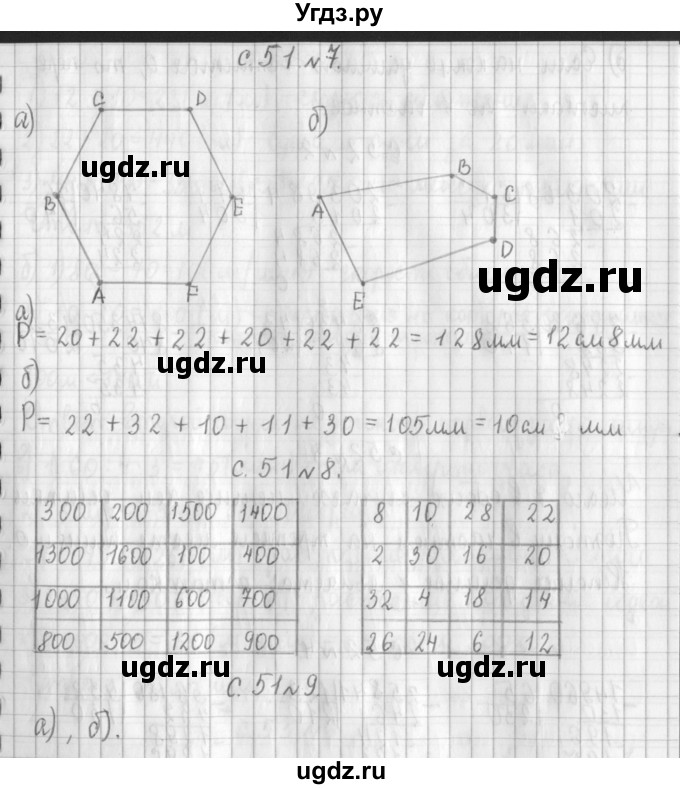 Угдз.ру
с. 51 №7.
а) б)
C D
B
ugdz.ru
B E A C
D
ugdz.ru
A F E
а)
P = 20 + 22 + 22 + 20 + 22 + 22 = 128мм = 12см8мм
ugdz.ru
б)
P = 22 + 32 + 10 + 11 + 30 = 105мм = 10см мм
с. 51 №8.
300 200 1500 1400 8 10 28 22
1300 1600 100 400 2 30 16 20
1000 1100 600 700 32 4 18 14
800 500 1200 900 26 24 6 12
ugdz.ru ugdz.ru
с. 51 №9.
а), б).
ugdz.ru